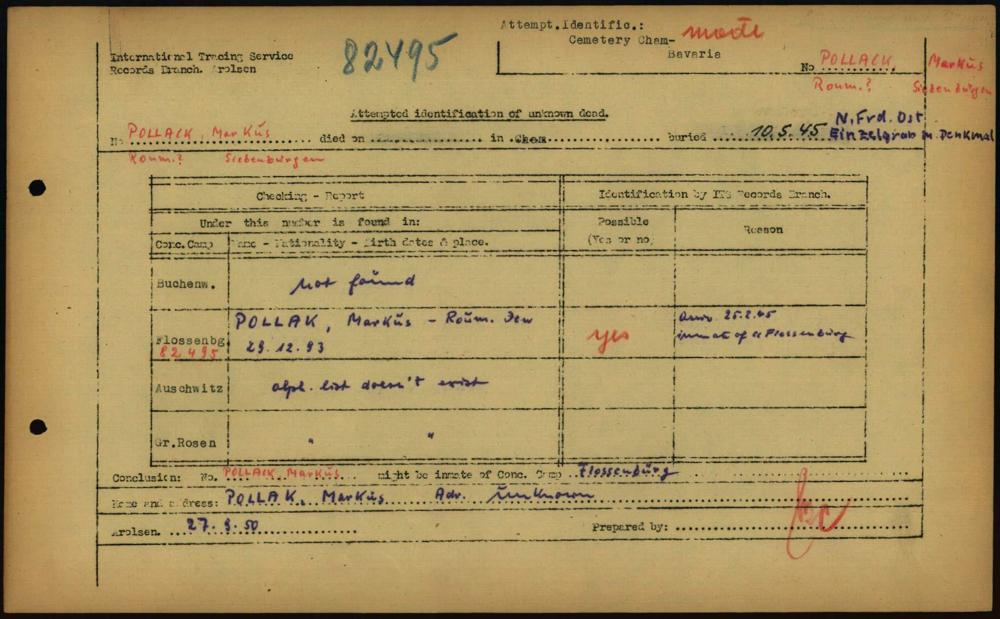 Attempt.Identific.:
Cemetery Cham- made
Bavaria
International Tracing Service
Records Branch. Arolsen
82495
No POLLACK, Markus
Roum.? Siebenbürgen
Attempted identification of unknown dead.
N.Frd. Ost
No POLLACK, Markus died on in Cham buried 10.5.45 Einzelgrab m. Denkmal
Roum.? Siebenbürgen
Checking - Report
Identification by ITS Records Branch.
Under this number is found in:
Possible
(Yes or no)
Reason
Conc.Camp Name - Nationality - Birth dates & place.
Buchenw. not found
Flossenbg 82495
POLLAK, Markus - Roum. Jew
29.12.93
yes
arriv. 25.2.45
inmate of cc Flossenbürg
Auschwitz alph. list doesn't exist
Gr.Rosen " "
Conclusion: No. POLLACK, Markus might be inmate of Conc. Camp Flossenbürg
Name and address: POLLAK, Markus Adr. unknown
Arolsen. 27.9.50 Prepared by: